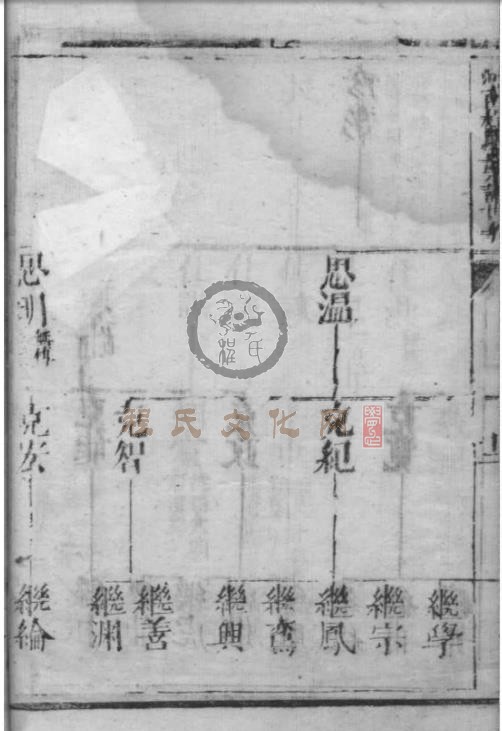 思温
克紀
繼學
繼宗
繼鳳
繼鸞
繼興
克智
繼善
繼淵
思明
克安
繼綸
程氏文化网